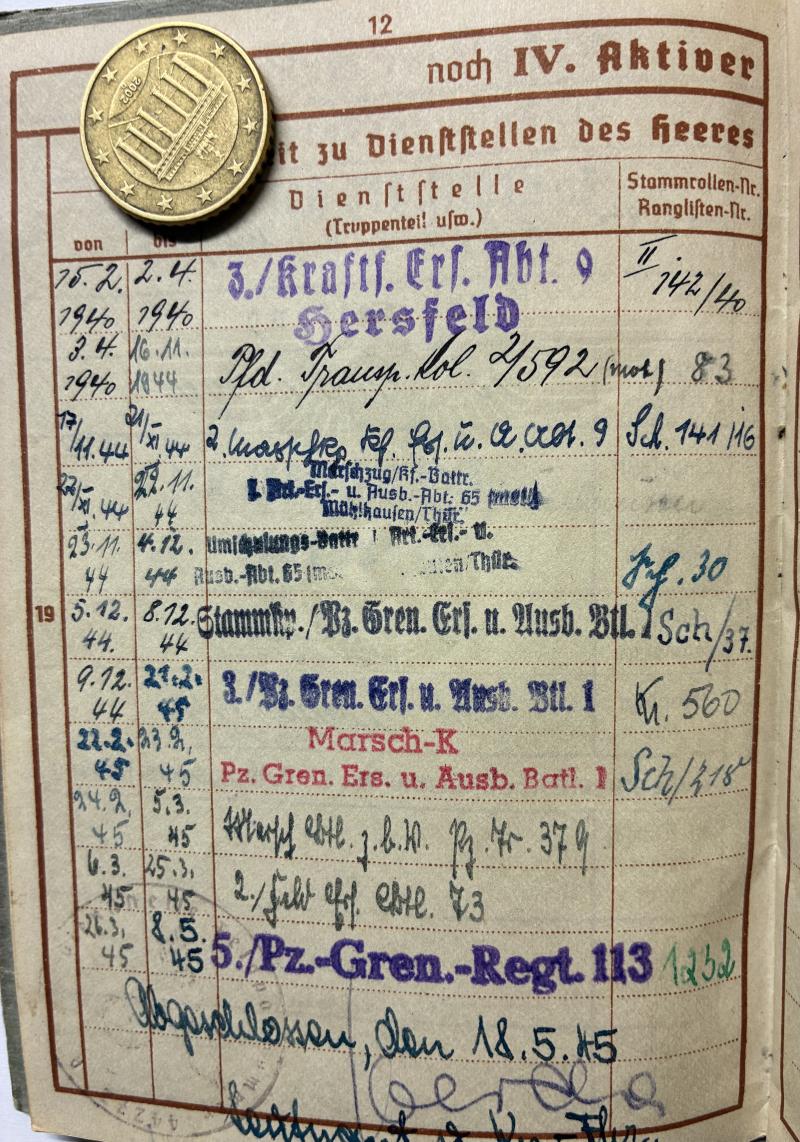 12
noch IV. Aktiver
it zu Dienststellen des Heeres
Dienststelle
(Truppenteil usw.)
Stammrollen-Nr.
Ranglisten-Nr.
von bis
2002
15.2. 1940 2.4. 1940 3./Kraftf. Ers. Abt. 9 Hersfeld II. 142/40
3.4. 1940 16.11. 1944 Pfd. Transp. Kol. 2/592 (mot) 83
17/11.44 21/XI.44 2. Kf. Ers. u. A. Abt. 9 Sch. 141/16
22/XI.44 22.11. 44 Marschzug/Kf.-Battr.
1. Art.-Ers.- u. Ausb.-Abt. 65 (mot)
Mühlhausen/Thür.
23.11. 44 4.12. 44 Umschulungs-Battr Art.-Ers.- u.
Ausb.-Abt. 65 (mo /Thür. 30
19
5.12. 44. 8.12. 44 Stammkp./Pz. Gren. Ers. u. Ausb. Btl. 1 Sch/37.
9.12. 44 21.2. 45 3./Pz. Gren. Ers. u. Ausb. Btl. 1 Kr. 560
22.2. 45 23.2. 45 Marsch-K
Pz. Gren. Ers. u. Ausb. Batl. 1 Sch/218
24.2. 45 5.3. 45 Marsch Btl. z.b.V. Pz. Tr. 379
6.3. 45 25.3. 45 2./Feld Ers. Btl. 73
26.3. 45 8.5. 45 5./Pz.-Gren.-Regt. 113 1232
Abgeschlossen, den 18.5.45